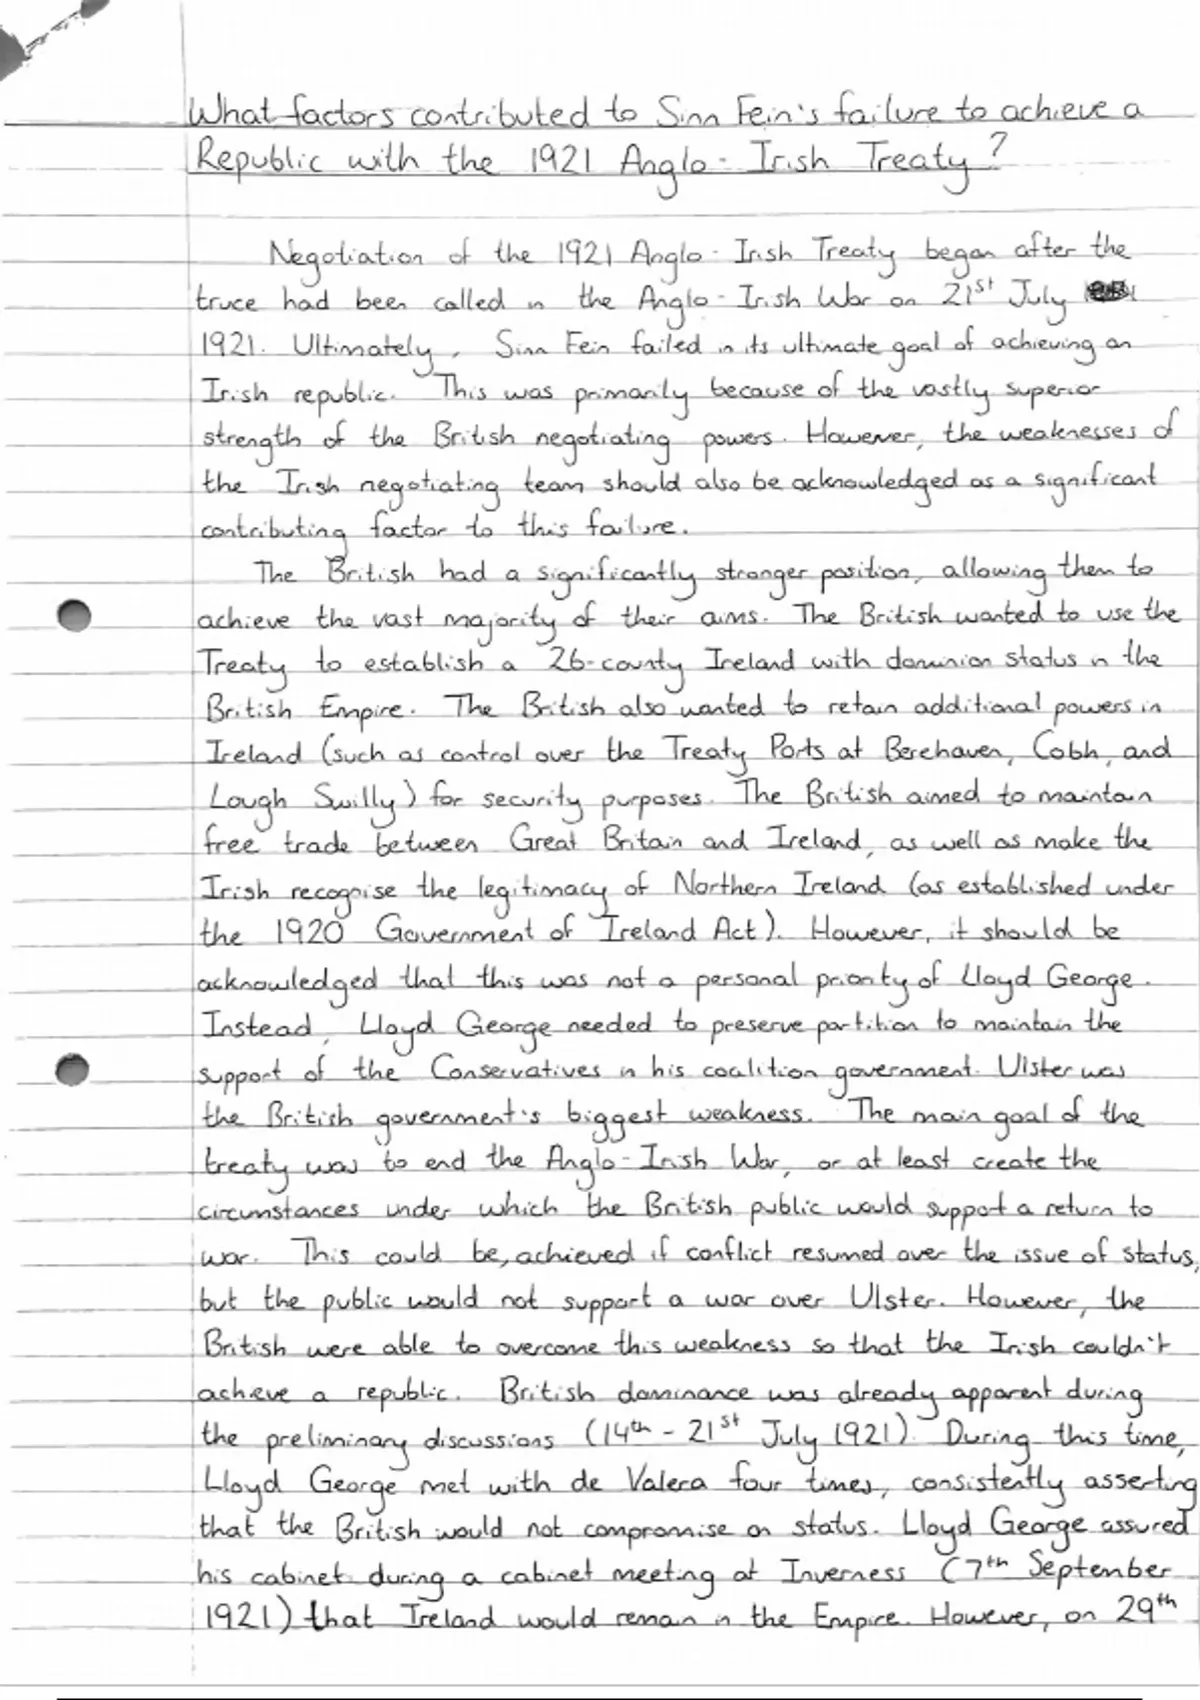 What factors contributed to Sinn Fein's failure to achieve a
Republic with the 1921 Anglo-Irish Treaty?
Negotiation of the 1921 Anglo-Irish Treaty began after the
truce had been called in the Anglo-Irish War on 21st July
1921. Ultimately, Sinn Fein failed in its ultimate goal of achieving an
Irish republic. This was primarily because of the vastly superior
strength of the British negotiating powers. However, the weaknesses of
the Irish negotiating team should also be acknowledged as a significant
contributing factor to this failure.
The British had a significantly stronger position, allowing them to
achieve the vast majority of their aims. The British wanted to use the
Treaty to establish a 26-county Ireland with dominion status in the
British Empire. The British also wanted to retain additional powers in
Ireland (such as control over the Treaty Ports at Berehaven, Cobh, and
Lough Swilly) for security purposes. The British aimed to maintain
free trade between Great Britain and Ireland, as well as make the
Irish recognise the legitimacy of Northern Ireland (as established under
the 1920 Government of Ireland Act). However, it should be
acknowledged that this was not a personal priority of Lloyd George.
Instead, Lloyd George needed to preserve partition to maintain the
support of the Conservatives in his coalition government. Ulster was
the British government's biggest weakness. The main goal of the
treaty was to end the Anglo-Irish War, or at least create the
circumstances under which the British public would support a return to
war. This could be, achieved if conflict resumed over the issue of status,
but the public would not support a war over Ulster. However, the
British were able to overcome this weakness so that the Irish couldn't
achieve a republic. British dominance was already apparent during
the preliminary discussions (14th - 21st July 1921). During this time,
Lloyd George met with de Valera four times, consistently asserting
that the British would not compromise on status. Lloyd George assured
his cabinet during a cabinet meeting at Inverness (7th September
1921) that Ireland would remain in the Empire. However, on 29th